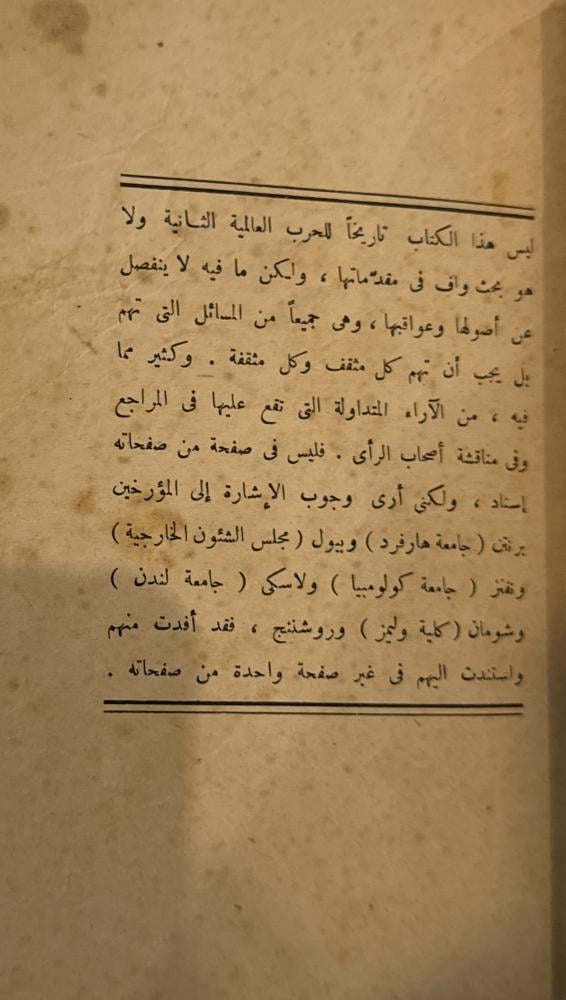 ليس هذا الكتاب تاريخاً للحرب العالمية الثانية ولا
هو بحث واف فى مقدّماتها ، ولكن ما فيه لا ينفصل
عن أصولها وعواقبها ، وهى جميعاً من المسائل التى تهم
بل يجب أن تهم كل مثقف وكل مثقفة . وكثير مما
فيه ، من الآراء المتداولة التى تقع عليها فى المراجع
وفى مناقشة أصحاب الرأى . فليس فى صفحة من صفحاته
إسناد ، ولكنى أرى وجوب الإشارة إلى المؤرخين
برنتن ( جامعة هارفرد ) وبيول ( مجلس الشئون الخارجية )
ونفنز ( جامعة كولومبيا ) ولاسكى ( جامعة لندن )
وشومان ( كلية وليمز ) وروشننج ، فقد أفدت منهم
واستندت اليهم فى غير صفحة واحدة من صفحاته .